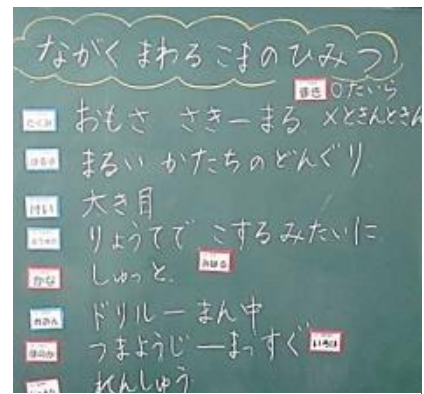 ながく まわる こまのひみつ
まき ○たいら
たくみ おもさ さきーまる ×ときんときん
はると まるい かたちのどんぐり
けい 大き目
りょうてで こするみたいに
かな しゅっと。 みはる
ドリルーまん中
ほのか つまようじーまっすぐ いろは
れんしゅう